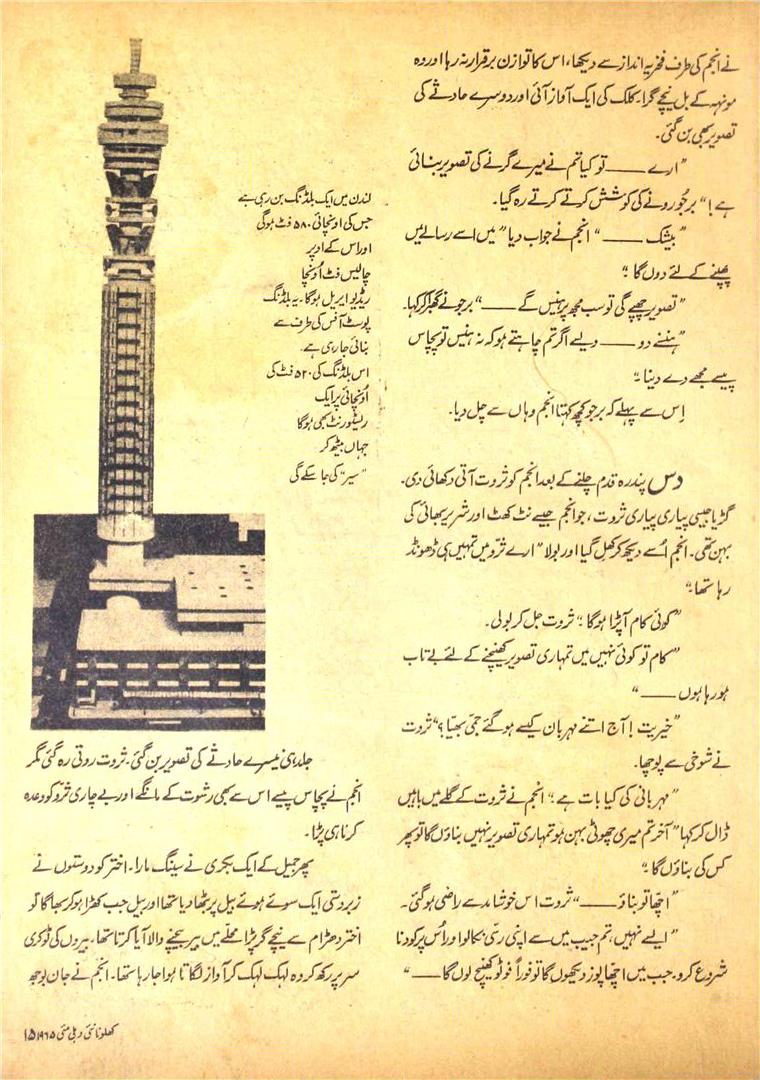 نے انجم کی طرف فخریہ انداز سے دیکھا، اس کا توازن برقرار نہ رہا اور وہ
مونہہ کے بل نیچے گرا۔ کلک کی ایک آواز آئی اور دوسرے حادثے کی
تصویر بھی بن گئی۔
"ارے ——— تو کیا تم نے میرے گرنے کی تصویر بنائی
ہے!" برجُو رونے کی کوشش کرتے کرتے رہ گیا۔
"بیشک ———" انجم نے جواب دیا "میں اسے رسالے میں
چھپنے کے لئے دوں گا۔"
"تصویر چھپے گی تو سب مجھ پر ہنسیں گے ———" برجو نے گھبرا کر کہا۔
"ہنسنے دو ——— ویسے اگر تم چاہتے ہو کہ نہ ہنسیں تو پچاس
پیسے مجھے دے دینا۔"
اِس سے پہلے کہ برجو کچھ کہتا انجم وہاں سے چل دیا۔
دس پندرہ قدم چلنے کے بعد انجم کو ثروت آتی دکھائی دی۔
گڑیا جیسی پیاری پیاری ثروت، جو انجم جیسے نٹ کھٹ اور شریر بھائی کی
بہن تھی۔ انجم اُسے دیکھ کر کھِل گیا اور بولا "ارے ثرّو میں تمہیں ہی ڈھونڈ
رہا تھا۔"
"کوئی کام آپڑا ہوگا۔" ثروت جل کر بولی۔
"کام تو کوئی نہیں میں تمہاری تصویر کھینچنے کے لئے بے تاب
ہو رہا ہوں ———"
"خیریت! آج اتنے مہربان کیسے ہو گئے جمّی بھیّا؟" ثروت
نے شوخی سے پوچھا۔
"مہربانی کی کیا بات ہے۔" انجم نے ثروت کے گلے میں باہیں
ڈال کر کہا "آخر تم میری چھوٹی بہن ہو تمہاری تصویر نہیں بناؤں گا تو پھر
کس کی بناؤں گا۔"
"اچّھا تو بناؤ ———" ثروت اس خوشامد سے راضی ہوگئی۔
"ایسے نہیں، تم جیب میں سے اپنی رسّی نکالو اور اُس پر کودنا
شروع کرو۔ جب میں اچّھا پوز دیکھوں گا تو فوراً فوٹو کھینچ لوں گا ———"
لندن میں ایک بلڈنگ بن رہی ہے
جس کی اونچائی ۵۸۰ فٹ ہوگی
اور اس کے اوپر
چالیس فٹ اُونچا
ریڈیو ایریل ہوگا۔ یہ بلڈنگ
پوسٹ آفس کی طرف سے
بنائی جارہی ہے۔
اس بلڈنگ کی ۵۲۰ فٹ کی
اُونچائی پر ایک
ریسٹورنٹ بھی ہوگا
جہاں بیٹھ کر
"سیر" کی جا سکے گی
جلد ہی تیسرے حادثے کی تصویر بن گئی۔ ثروت روتی رہ گئی مگر
انجم نے پچاس پیسے اس سے بھی رشوت کے مانگے اور بے چاری ثرّو کو وعدہ
کرنا ہی پڑا۔
پھر جمیل کے ایک بکری نے سینگ مارا۔ اختر کو دوستوں نے
زبردستی ایک سوئے ہوئے بیل پر بٹھا دیا تھا اور بیل جب کھڑا ہو کر بھاگا تو
اختر دھڑام سے نیچے گر پڑا محلّے میں بیر بیچنے والا آیا کرتا تھا۔ بیروں کی ٹوکری
سر پر رکھ کر وہ لہک لہک کر آواز لگاتا ہوا جا رہا تھا۔ انجم نے جان بوجھ
کھلونا نئی دہلی مئی ۱۹۶۵ ۱۵